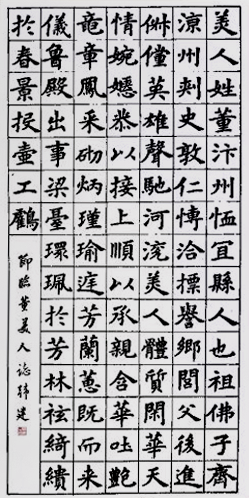 美人姓董汴州恤宜縣人也祖佛子齊
涼州刺史敦仁博洽標譽鄉閭父後進
俶儻英雄聲馳河渷美人體質閑華天
情婉嫕恭以接上順以承親含華吐艶
竜章鳳采砌炳瑾瑜庭芳蘭蕙既而来
儀魯殿出事梁臺環珮於芳林袨綺繢
於春景投壺工鶴
節臨董美人誌